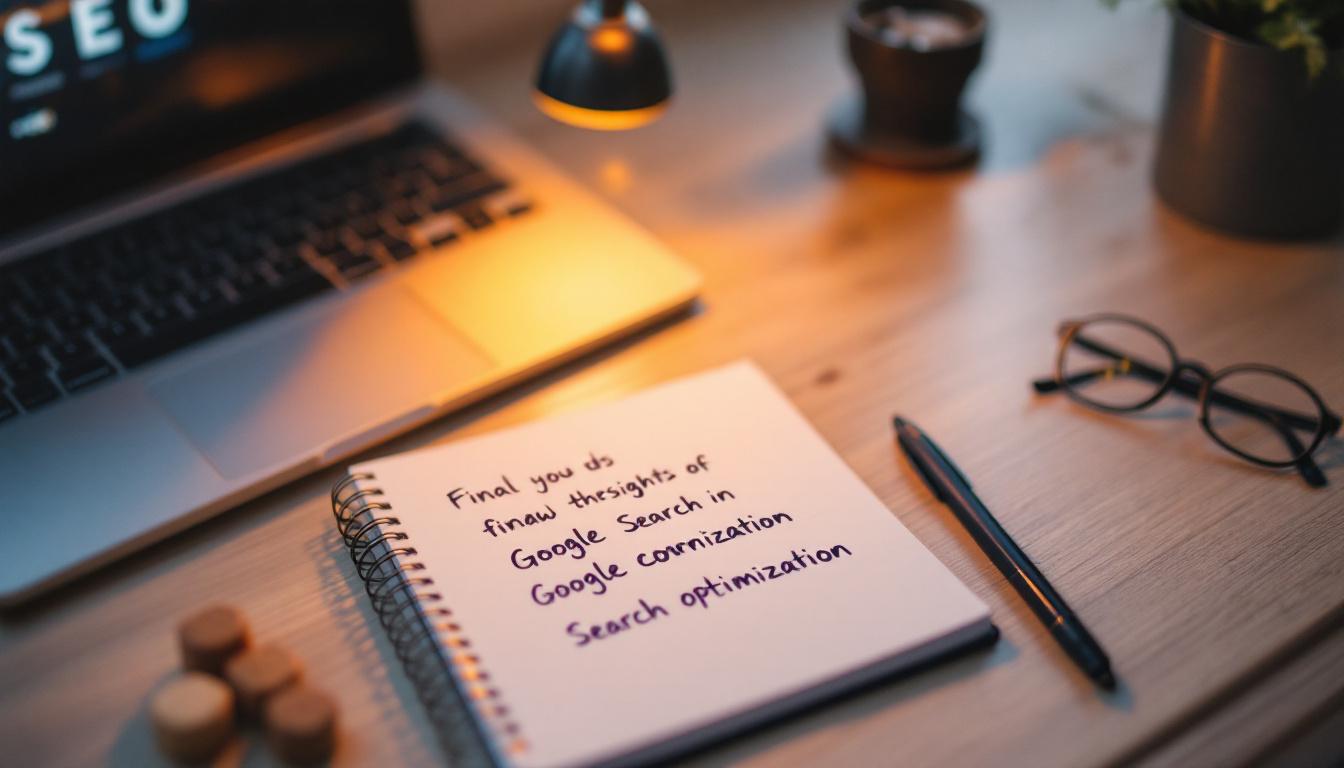 SEO
Final you ds
finaw thesights of
Google Search in
Google cornnization
Search optimization